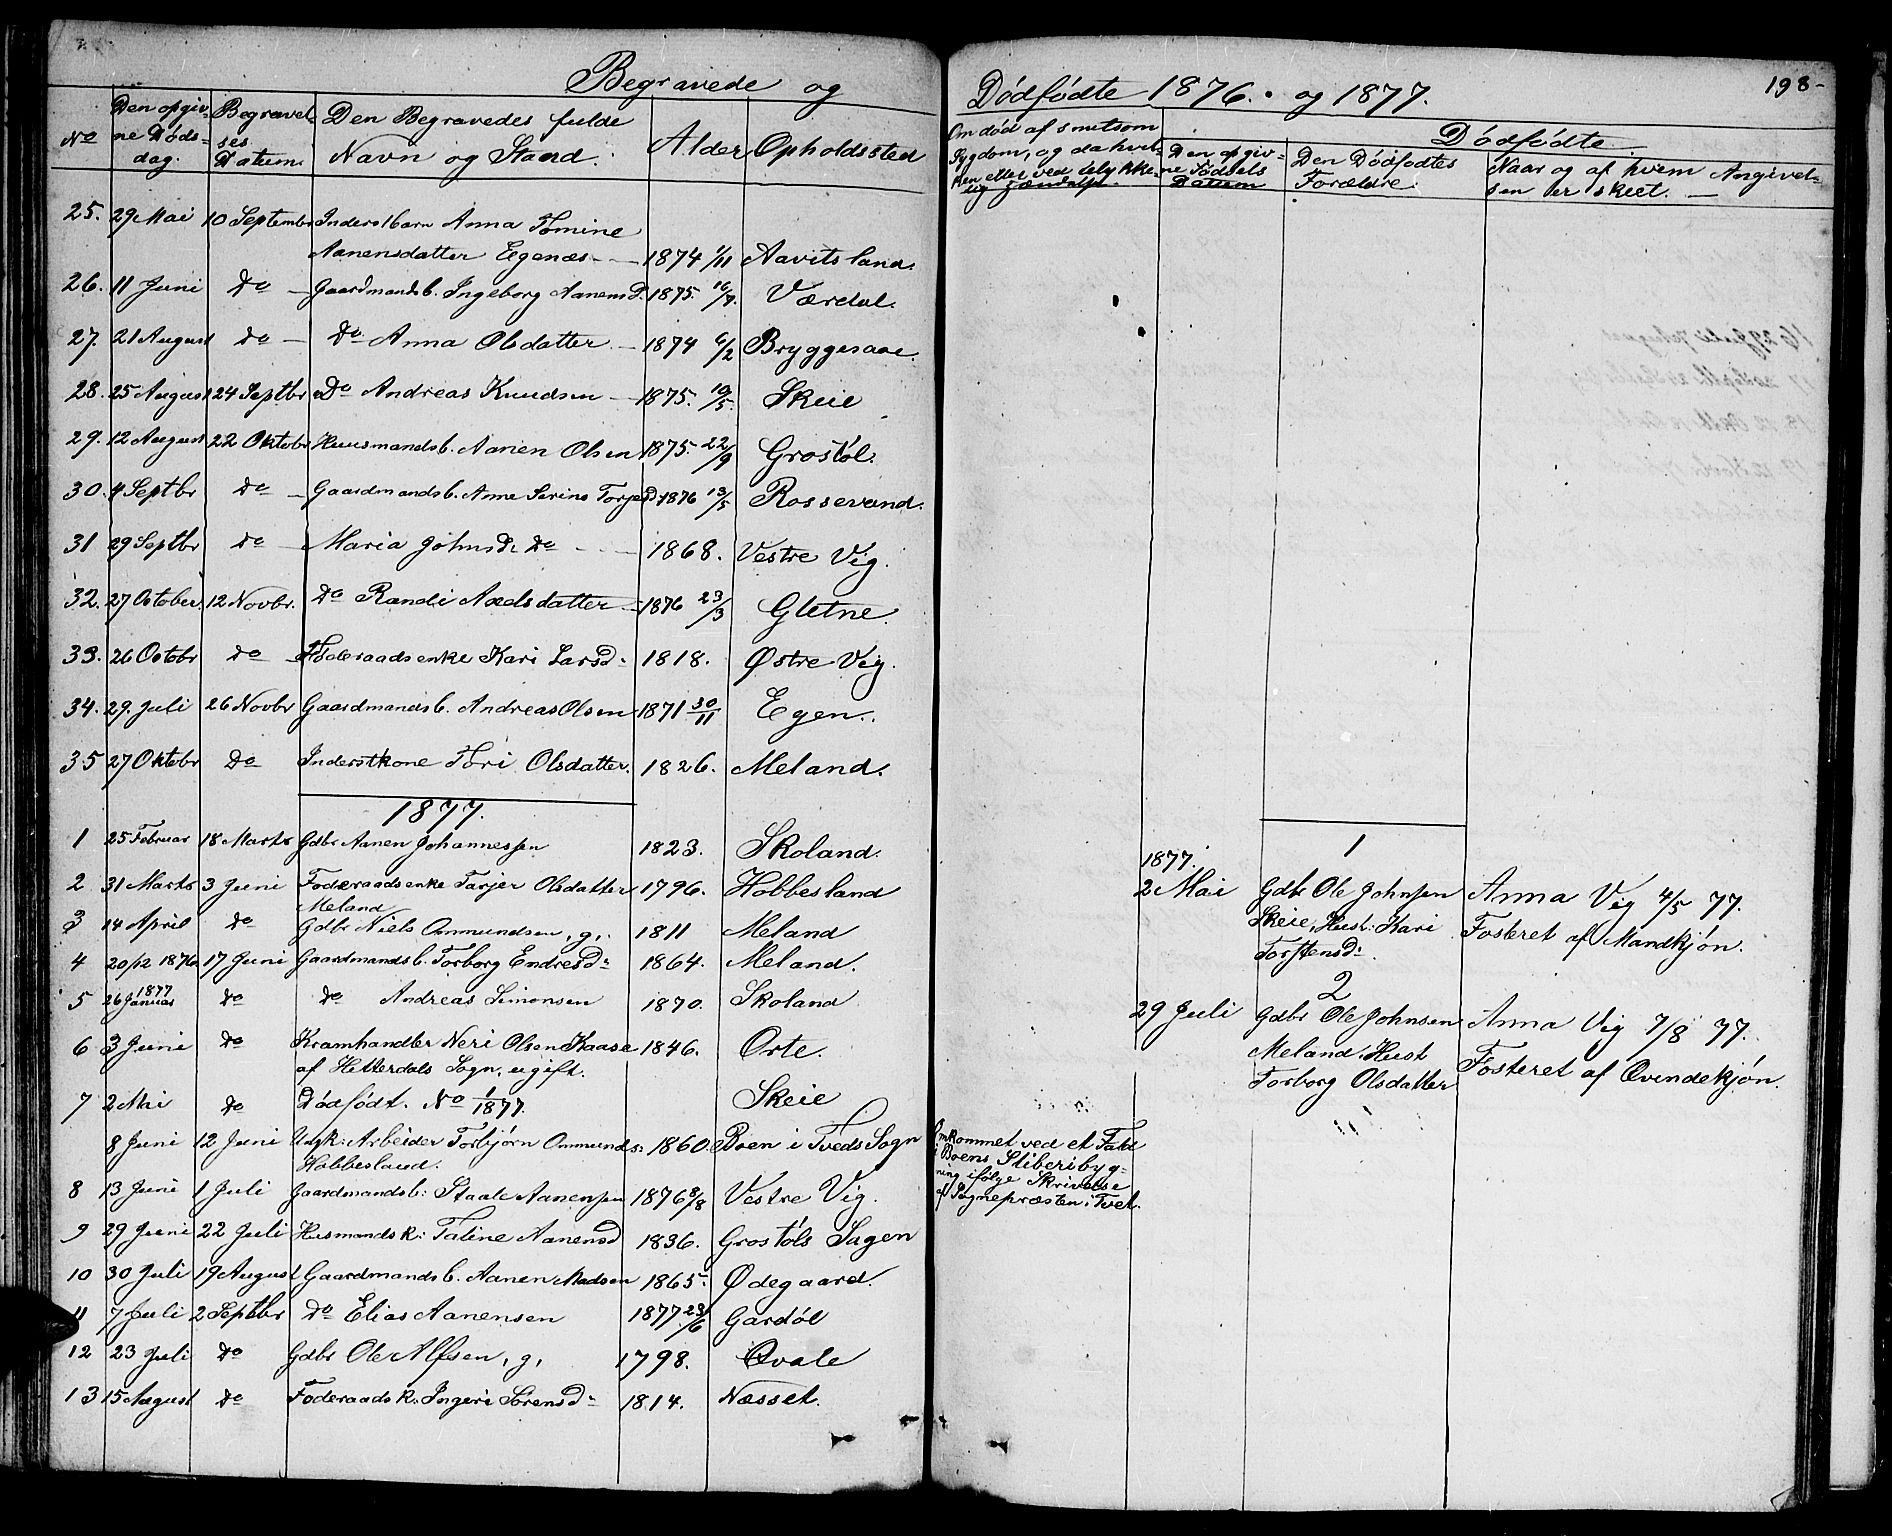 Begravede og
Dødfødte 1876. og 1877.
198-
No
Den opgiv-
ne Døds-
dag.
Begravel-
ses
Datum.
Den Begravedes fulde
Navn og Stand.
Alder
Opholdssted
Om død af smitsom
Sygdom, og da hvil-
ken eller ved ulykke-
lig Hændelse.
Dødfødte.
Den opgiv-
ne Fødsels
Datum
Den Dødfødtes
Forældre.
Naar og af hvem Angivel-
sen er skeet.
25. 29 Mai 10 September Inderstbarn Anna Tomine
Aanensdatter Egenæs - 1874 1/11 Aavitsland.
26. 11 Juni Do - Gaardmandsb. Ingeborg AanensD. 1875. 16/7. Værdal.
27. 21 August Do - Do Anna Olsdatter - 1874 6/2 Bryggesaae.
28. 25 August 24 Septbr Do Andreas Knudsen - 1875. 10/5. Skeie
29. 12 August 22 Oktobr Huusmandsb. Aanen Olsen 1875. 22/9 Grostöl.
30. 4 Septbr Do - Gaardmandsb. Anne Serine TorjesD. 1876 13/5 Rossevand.
31 29 Septbr Do - Maria JohnsD. Do - 1868. Vestre Vig.
32. 27 October 12 Novbr. Do Randi Axelsdatter - 1876 23/3 Gletne.
33. 26 Octobr Do - Føderaadsenke Kari Larsd. 1818. Østre Vig.
34. 29. Juli 26 Novbr Gaardmandsb. Andreas Olsen 1871 30/11 Egen.
35 27 Oktobr Do Inderstkone Töri Olsdatter. 1826. Meland.
1877.
1 25 Februar 18 Marts Gdbr Aanen Johannessen 1823. Skoland.
2 31 Marts 3 Juni Foderaadsenke Tarjer Olsdatter 1796. Hobbesland
Meland
3 14 April Do Gdbr Niels Ommundsen, g, 1811 Meland
4 20/12 1876 17 Juni Gaardmandsb. Torborg EndresD. 1864. Meland.
1877
5 26 Januar Do Do Andreas Simonsen 1870. Skoland
6 3 Juni Do Kramhandler Neri Olsen Kaasa 1846. Orte.
af Hitterdals Sogn, ugift.
7 2 Mai Do Dødfødt. No 1/1877. Skeie
8 Juni 12 Juni Ungk: Arbeider Torbjørn Ommunds: 1860. Boen i Tveds Sogn
Hobbesland.
Omkommet ved et Fald
i Boens Sliberibyg-
ning ifölge Skrivelse
af Sognepræsten i Tvet.
8 13 Juni 1 Juli Gaardmandsb: Staale Aanensen 1876 8/8 Vestre Vig.
9 29 Juni 22 Juli Husmandsk: Taline Aanensd 1836. Grostöls Sagen
10 30 Juli 19 August Gaardmandsb. Aanen Madsen 1865. Ødegaard.
11 7 Juli 2 Septbr Do Elias Aanensen 1877 23/6 Gardöl
12 23 Juli Do Gdbr Ole Alfsen, g, 1798. Qvale
13 15 August Do Foderaadsk: Ingeri SørensD. 1814. Næsset.
1
1877.
2 Mai Gdbr Ole Johnsen Anna Vig 4/5 77.
Skeie, Hust: Kari Fosteret af Mandkjön.
Torstensd.
2
29 Juli Gdbr Ole Johnsen Anna Vig 7/8 77.
Meland Hust Fosteret af Qvindekjön.
Torborg Olsdatter